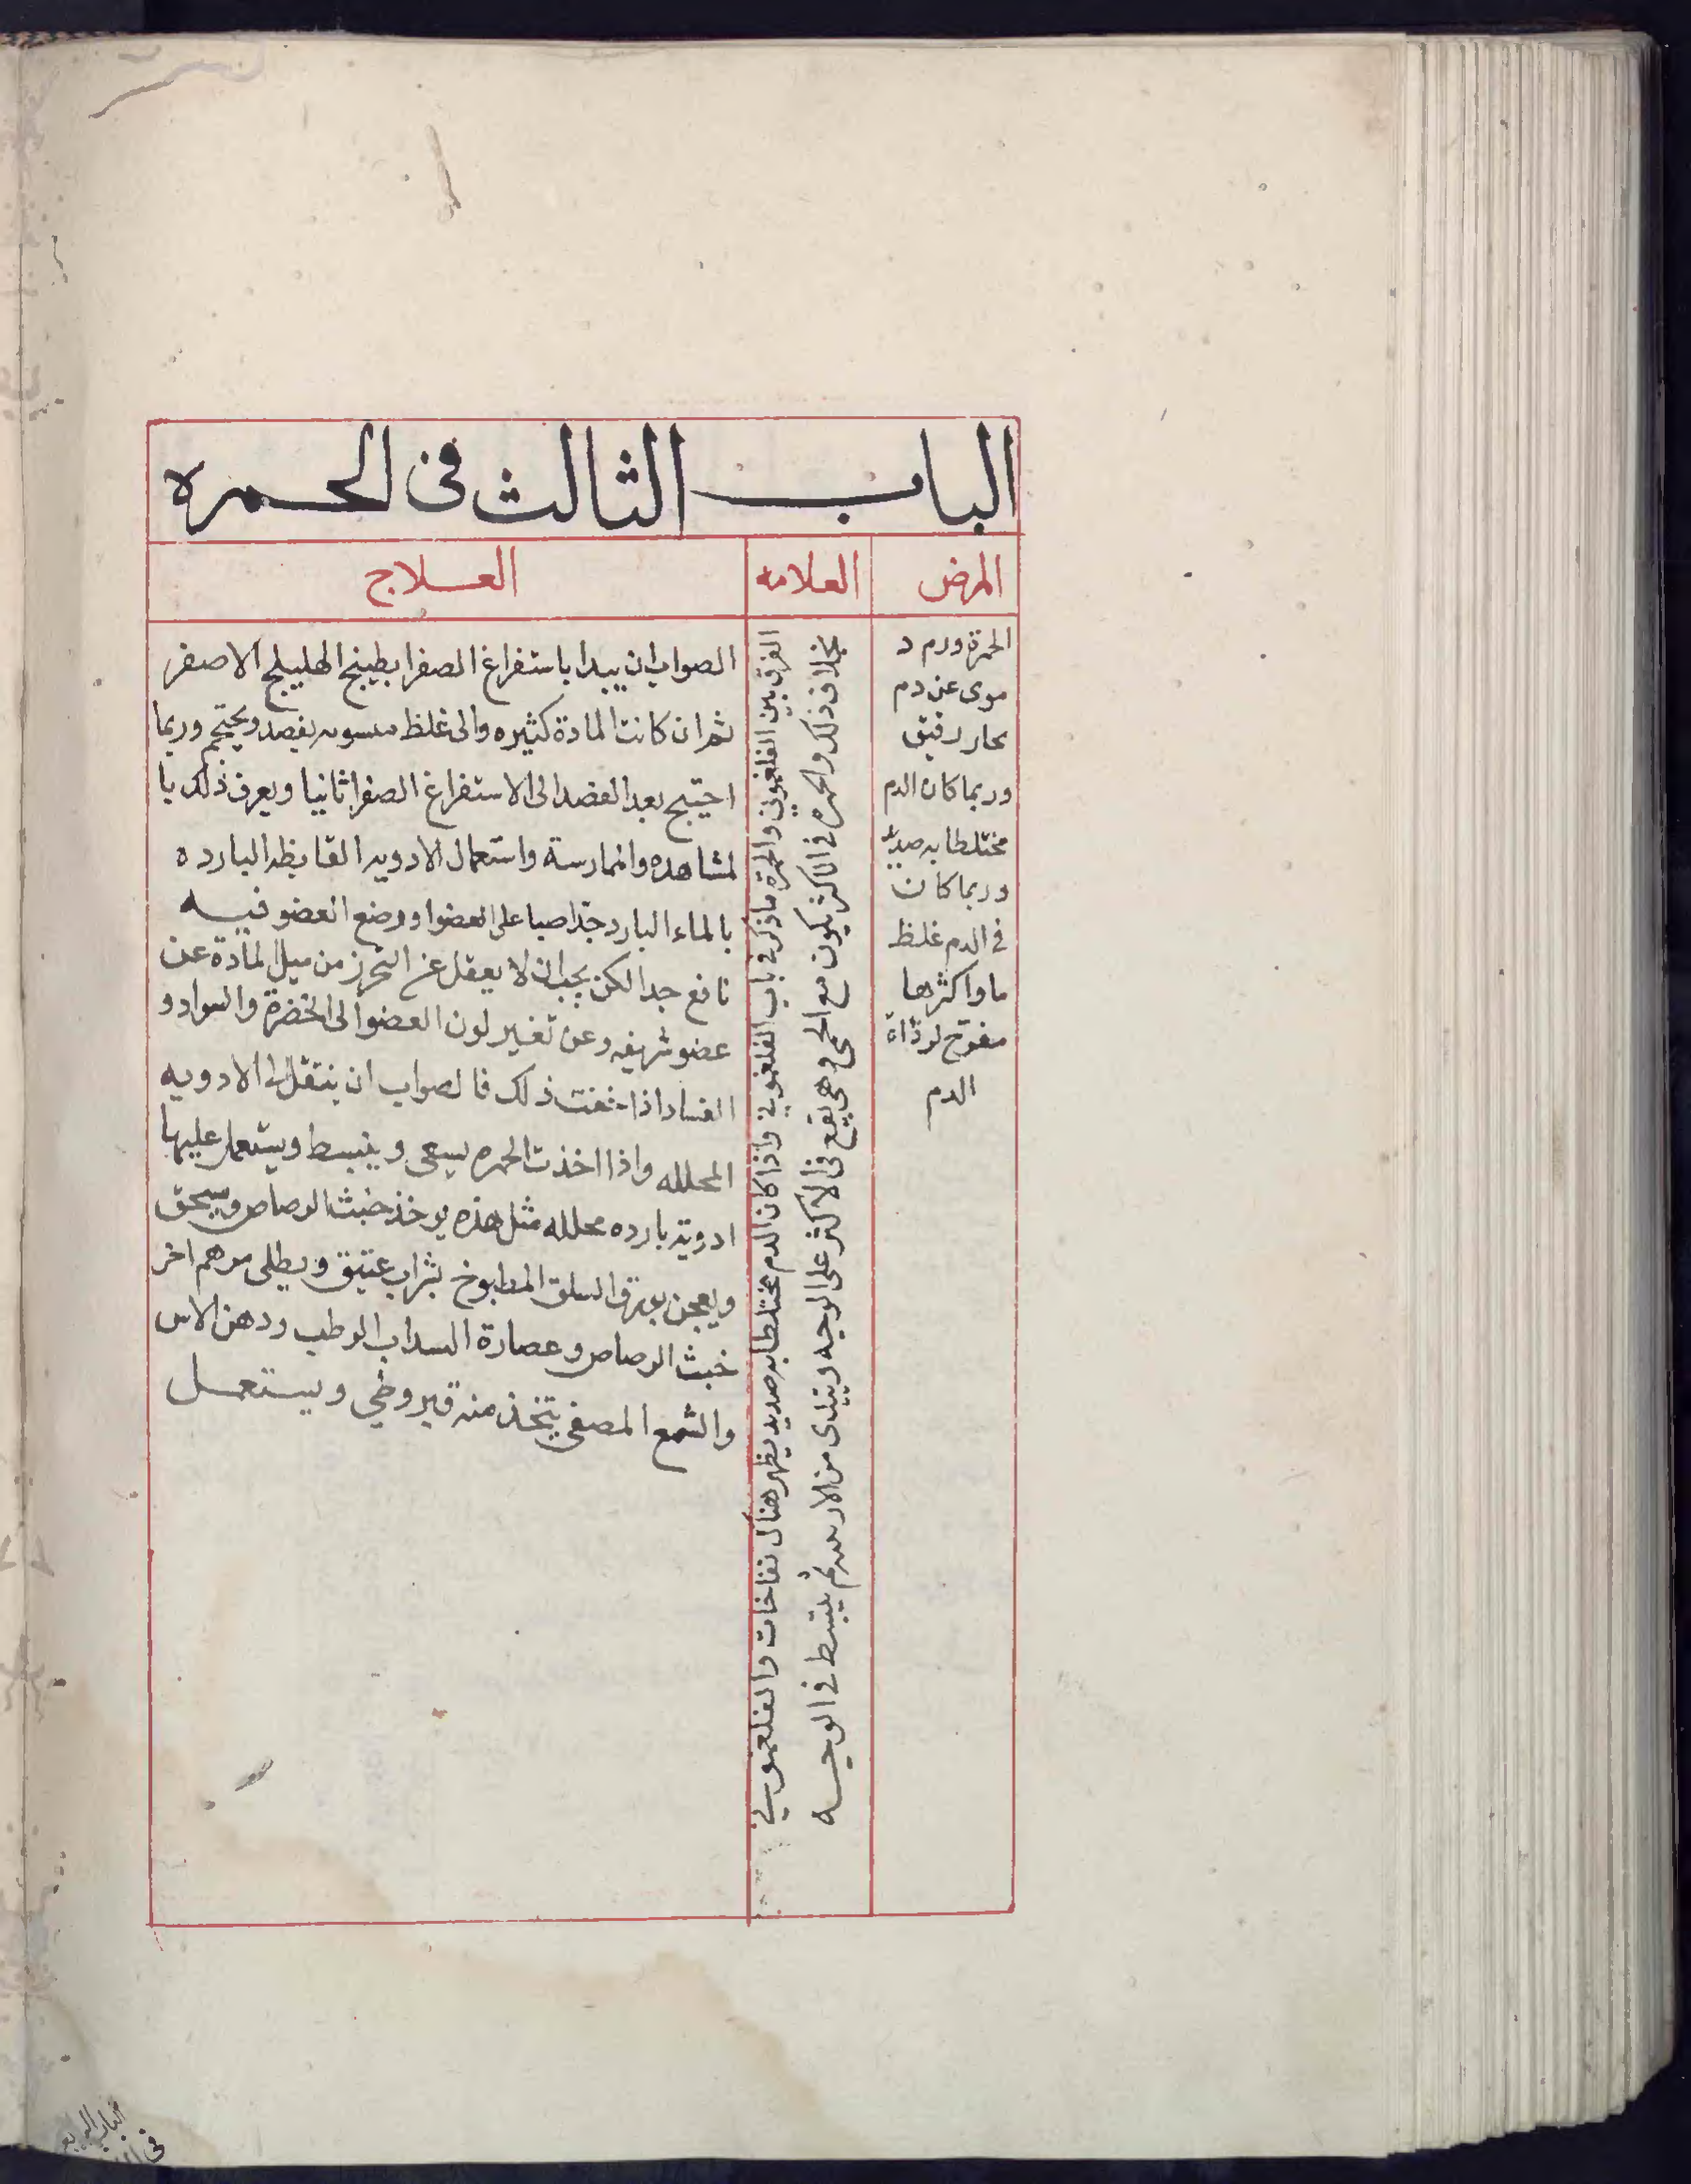 الباب الثالث فى الحمره
المرض
العلامه
العلاج
الحمرة ورم د
موى عن دم
حار رقيق
وربما كان الدم
مختلطا به صديد
وربما كان
فى الدم غلظ
ما واكثرها
مقوح لردّاة
الدم
الفرق بين الفلغموني والحمرة ما ذكر فى باب الفلغموني واذا كان الدم مختلطا به صديد يظهر هناك نفاخات والفلغموني
بخلاف ذلك والحمره فى الاكثر يكون مع الحمى وهى يقع فى الاكثر على الوجه ويبتدى من الارنبه ثم ينبسط فى الوجه
الصواب ان يبدا باستفراغ الصفرا بطبيخ الهليلج الاصفر
ثم ان كانت المادة كثيره والى غلظ يفصد ويحتجم وربما
احتيج بعد الفصد الى الاستفراغ الصفرا ثانيا ويعرف ذلك با
لمشاهده والممارسة واستعمال الادويه القابظه البارده
بالماء البارد جدّا صبا على العضو او وضع العضو فيه
نافع جدا لكن يجب ان لا يعقل عن التحرز من ميل المادة عن
عضو شريفه وعن تغير لون العضو الى الخضرة والسواد و
الفساد اذا خفت ذلك فالصواب ان ينتقل الى الادويه
المحلله واذا اخذت الحمره يسعى وينبسط ويستعمل عليها
ادوية بارده محلله مثل هذه يوخذ خبث الرصاص ويسحق
ويعجن بورق السلق المطبوخ بشراب عتيق ويطلى مرهم اخر
خبث الرصاص وعصارة السداب الرطب ودهن الاس
والشمع المصفى يتخذ منه قيروطي ويستعمل
الباب الرابع